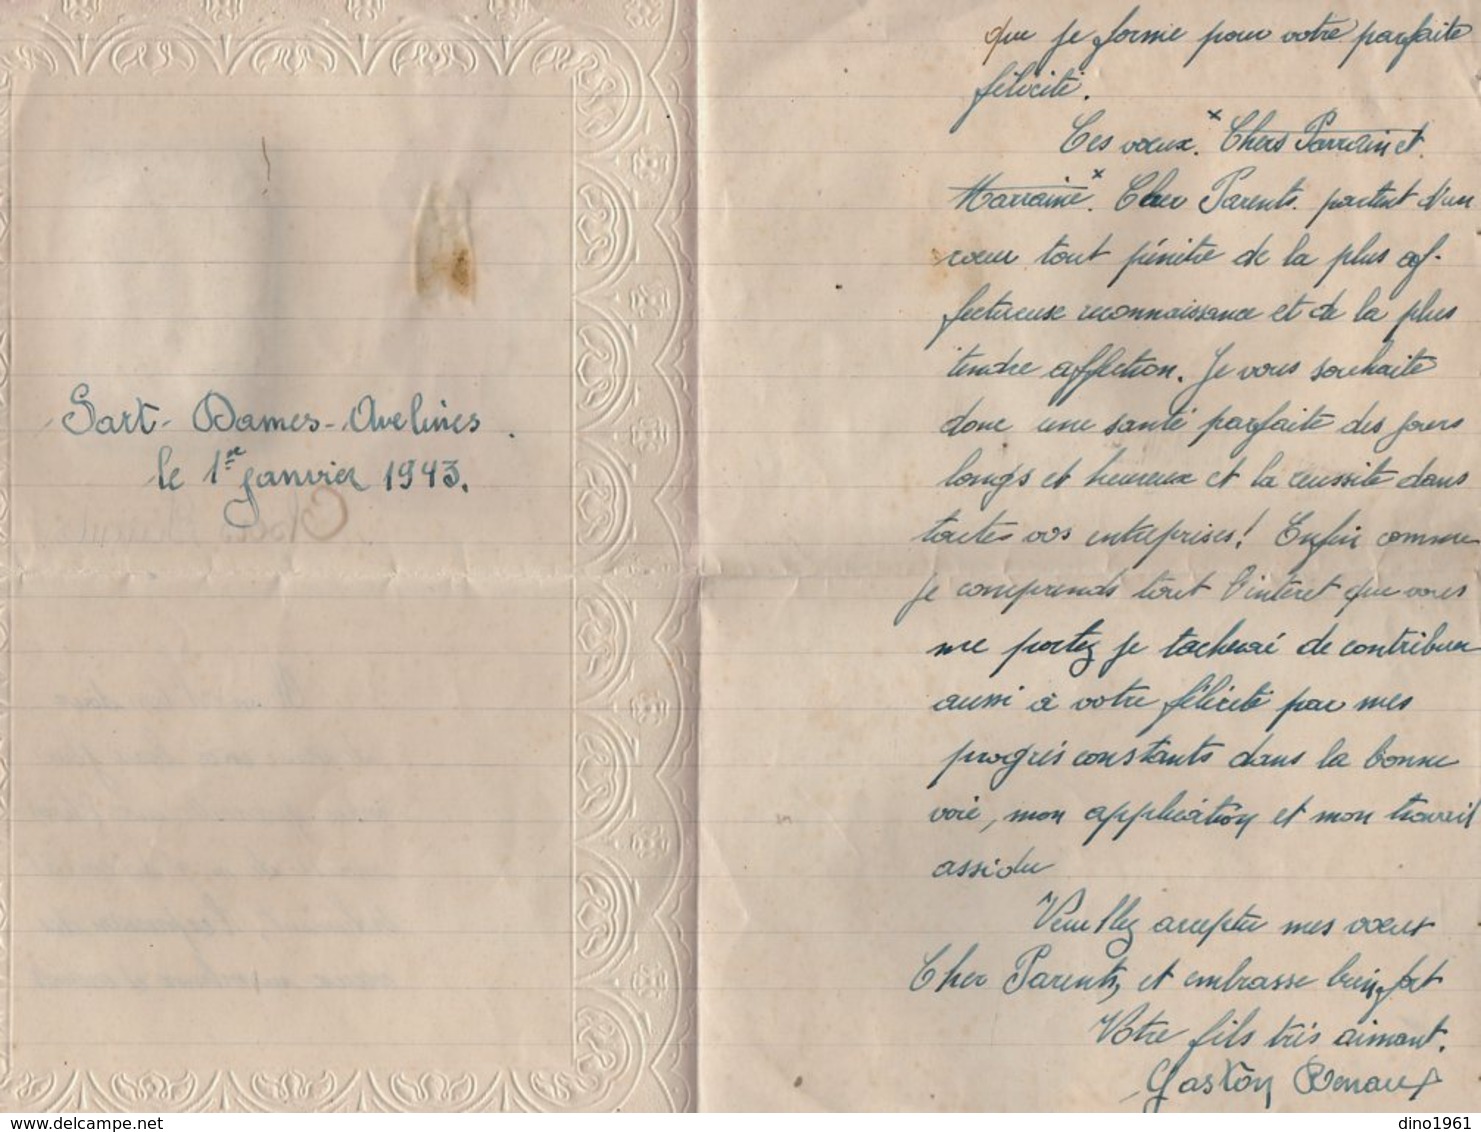 Sart-Dames-Avelines.
le 1er janvier 1943.
que je forme pour votre parfaite
félicité.
Ces vœux. Chers Parrain et
Marraine. Cher Parents. partent d'un
cœur tout pénétré de la plus af-
fectueuse reconnaissance et de la plus
tendre affection. Je vous souhaite
donc une santé parfaite des jours
longs et heureux et la réussite dans
toutes vos entreprises! Enfin comme
je comprends tout l'intéret que vous
me portez je tacherai de contribuer
aussi à votre félicité par mes
progrès constants dans la bonne
voie, mon application et mon travail
assidu
Veuillez accepter mes vœux
Cher Parents, et embrasse bien fort
Votre fils très aimant.
Gaston Renaux
dino1961